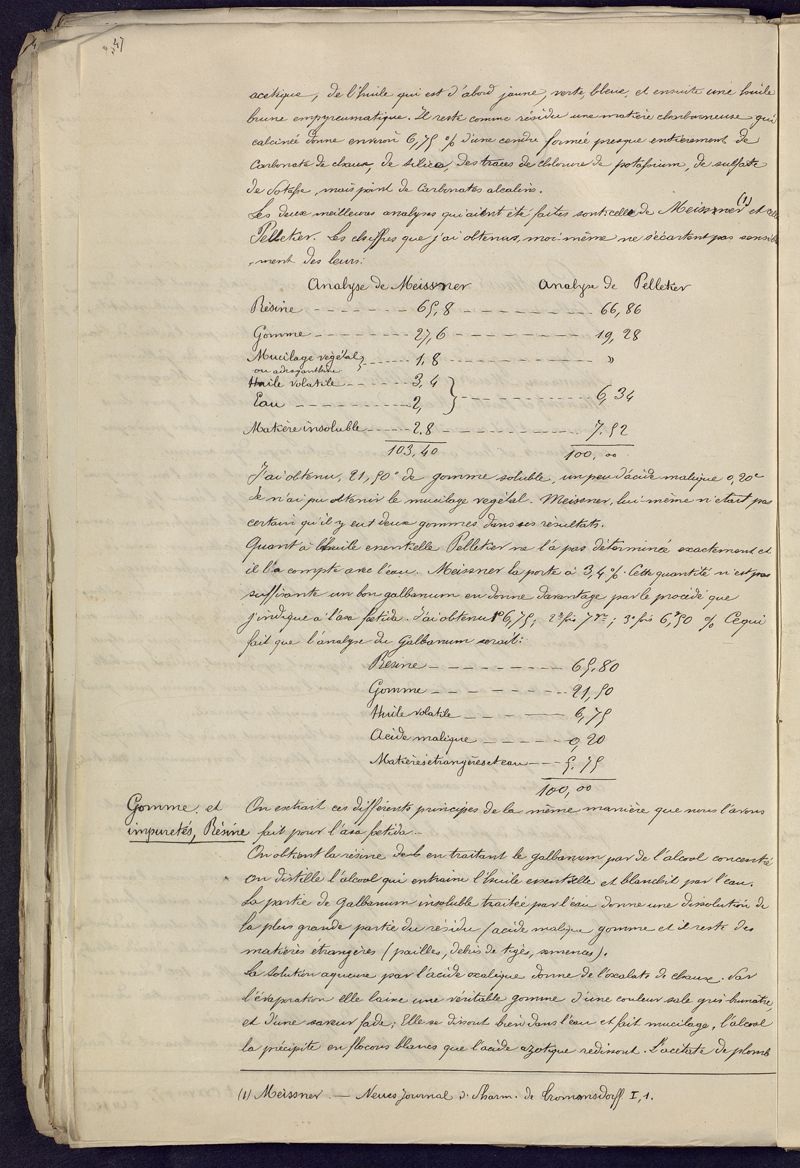 47
acétique, de l'huile qui est d'abord jaune, verte, bleue, et ensuite une huile
brune empyreumatique. Il reste comme résidu une matière charbonneuse qui
calcinée donne environ 6,75 % d'une cendre formée presque entièrement de
Carbonate de chaux, de silice, des traces de chlorure de potassium, de sulfate
de potasse, mais point de Carbonates alcalins.
Les deux meilleures analyses qui aient été faites sont celles de Meissner (1) et
Pelletier. Les chiffres que j'ai obtenus, moi même ne s'écartent pas sensible
-ment des leurs:
Analyse de Meissner Analyse de Pelletier
Résine - - - - - - - 65,8 - - - - - - - 66,86
Gomme - - - - - - - 27,6 - - - - - - - 19,28
Mucilage végétal } - - - - - 1,8 - - - - - - - "
ou adraganthine
Huile volatile - - - - - - 3,4 }
Eau - - - - - - - - - 2, } - - - - - - 6,34
Matière insoluble - - - - 2.8 - - - - - - 7.52
103,40 100,00
J'ai obtenu, 21,50 de gomme soluble, un peu d'acide malique 0,20
Je n'ai pu obtenir le mucilage végétal. Meissner, lui même n'était pas
certain qu'il y eut deux gommes dans ses résultats.
Quant à l'huile essentielle Pelletier ne l'a pas déterminée exactement et
il l'a compté avec l'eau. Meissner la porte à 3,4 %. Cette quantité n'est pas
suffisante un bon galbanum en donne davantage par le procédé que
j'indique à l'asa foetida. J'ai obtenu 1º 6,75; 2e fois 7; 3e fois 6,50 % Ce qui
fait que l'analyse du Galbanum serait:
Résine - - - - - - - 65.80
Gomme - - - - - - - 21,50
Huile volatile - - - - - - 6,75
Acide malique - - - - - 0,20
Matières étrangères et eau - - - 5.75
100,00
Gomme et
impuretés, Résine
On extrait ces différents principes de la même manière que nous l'avons
fait pour l'asa foetida. -
On obtient la résine en traitant le galbanum par de l'alcool concentré
on distille l'alcool qui entraine l'huile essentielle et blanchit par l'eau.
La partie de Galbanum insoluble traitée par l'eau donne une dissolution de
la plus grande partie du résidu (acide malique gomme et il reste des
matières étrangères (pailles, debris de tiges, semences).
La solution aqueuse par l'acide oxalique donne de l'oxalate de chaux. Par
l'évaporation elle laisse une véritable gomme d'une couleur sale gris brunâtre,
et d'une saveur fade; Elle se dissout bien dans l'eau et fait mucilage, l'alcool
la précipite en flocons blancs que l'acide azotique redissout. L'acétate de plomb
(1) Meissner. — Neues Journal d. Pharm. de Tromansdorff I, 1.